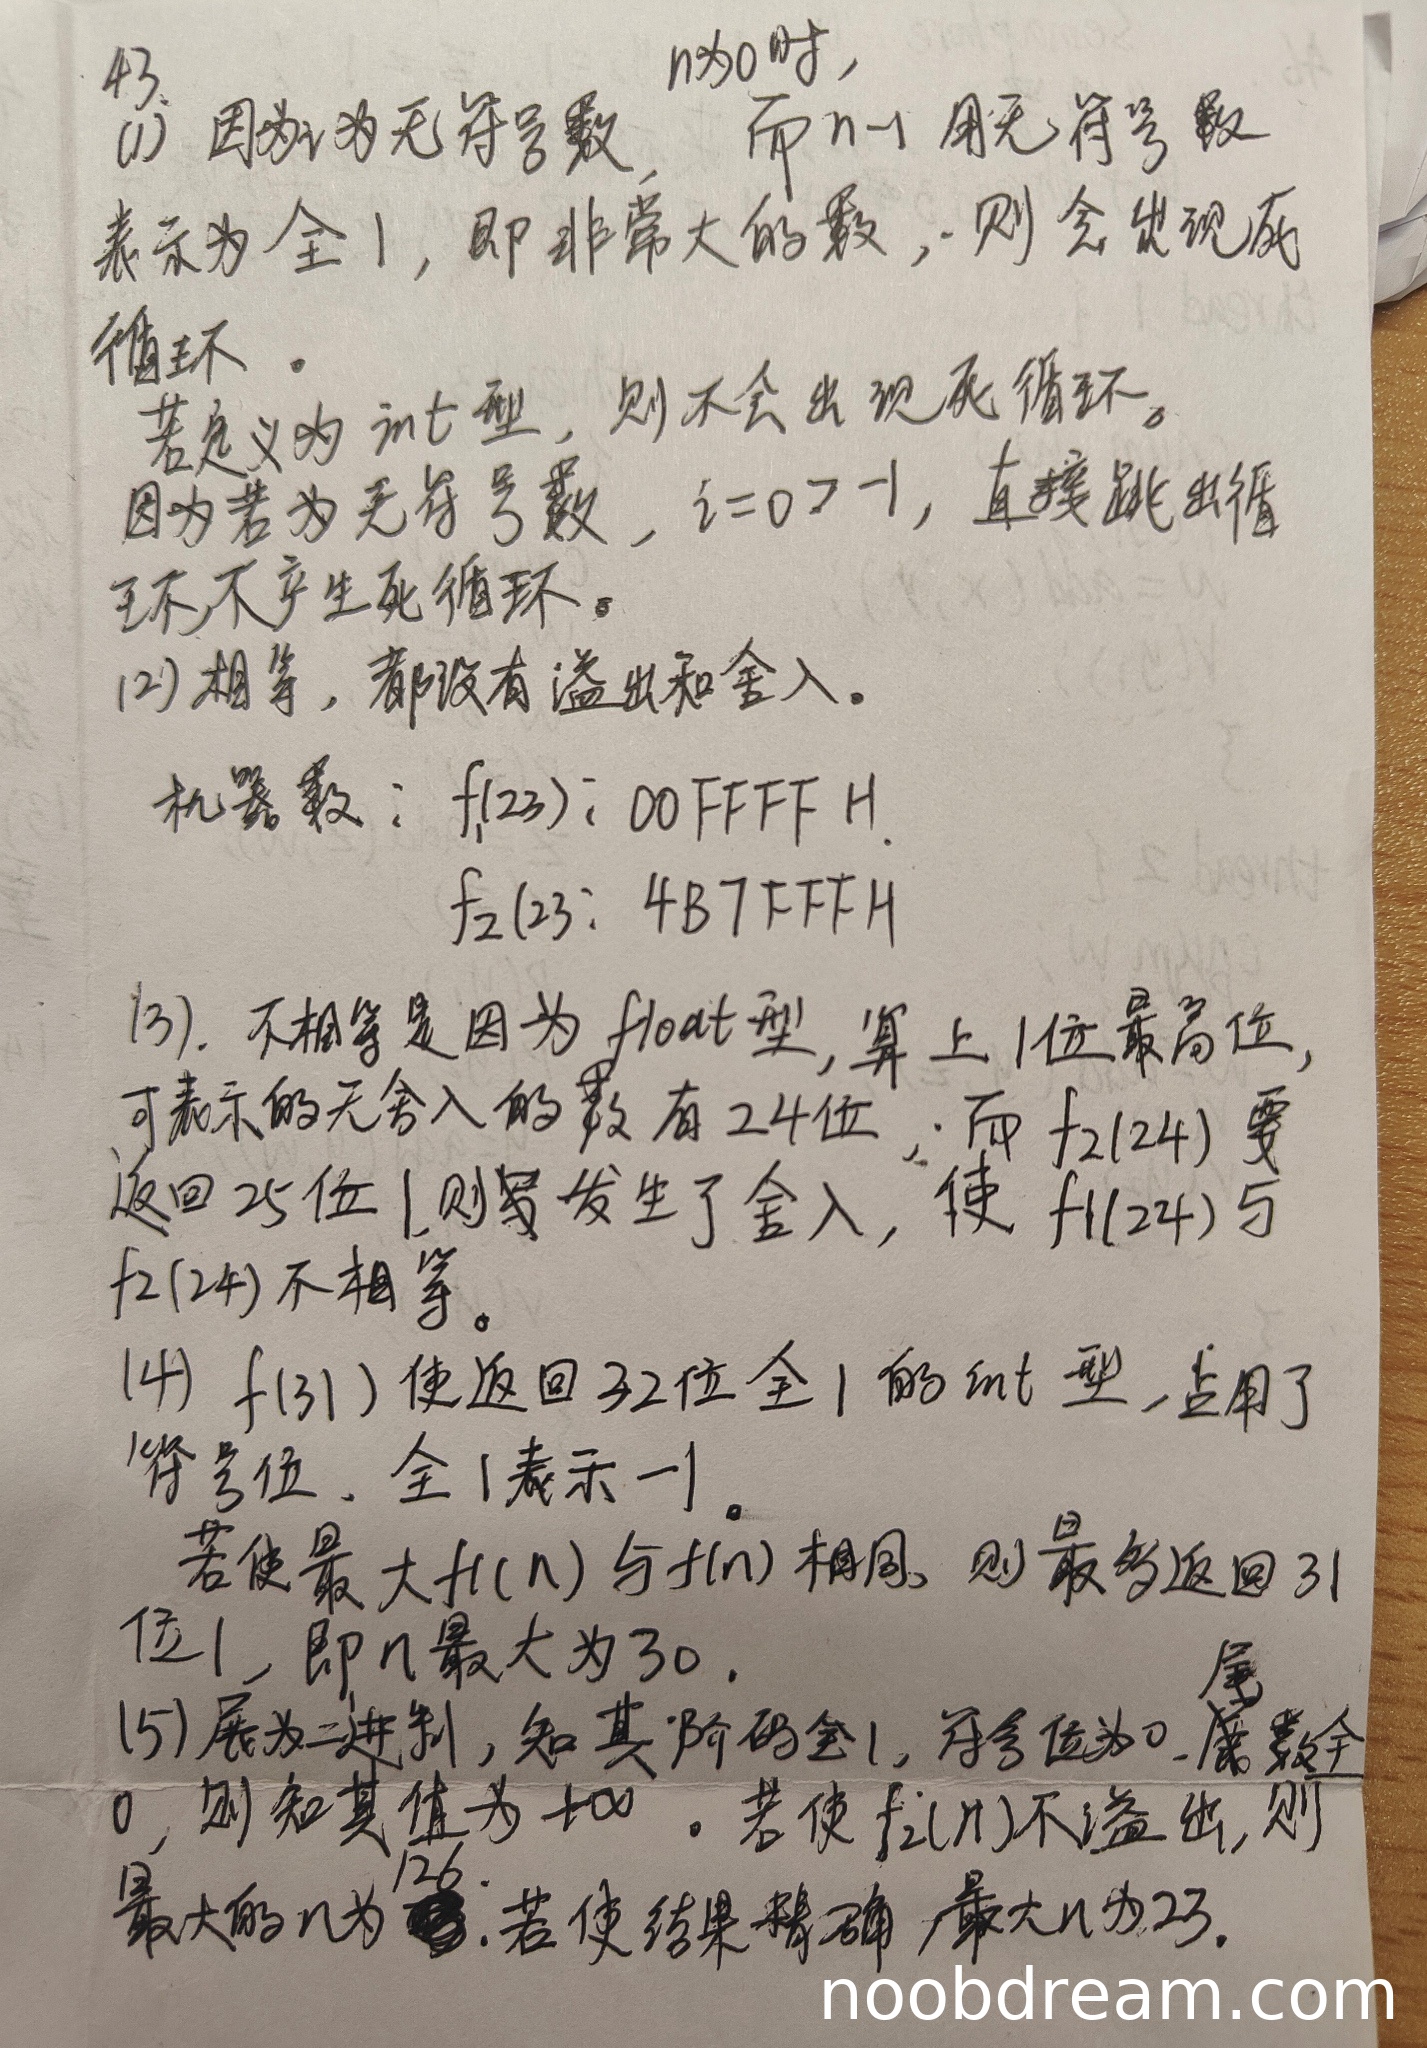 43.
n为0时,
(1) 因为i为无符号数, 而n-1用无符号数
表示为全1, 即非常大的数, ∴则会出现死
循环。
若定义为int型, 则不会出现死循环。
因为若为无符号数, i=0>-1, 直接跳出循
环,不产生死循环。
(2) 相等, 都没有溢出和舍入。
机器数: f1(23): 00FFFF H.
f2(23: 4B7FFFH
(3). 不相等是因为float型, 算上1位最高位,
可表示的无舍入的数有24位, ∴而f2(24)要
返回25位1,则发生了舍入, 使f1(24)与
f2(24)不相等。
(4) f(31)使返回32位全1的int型, 占用了
符号位、全1表示-1。
若使最大f1(n)与f(n)相同, 则最多返回31
位1, 即n最大为30.
(5) 展为二进制, 知其阶码全1, 符号位为0, 尾数全
0, 则知其值为+∞。若使f2(n)不溢出, 则
最大的n为126. 若使结果精确, 最大n为23.
noobdream.com